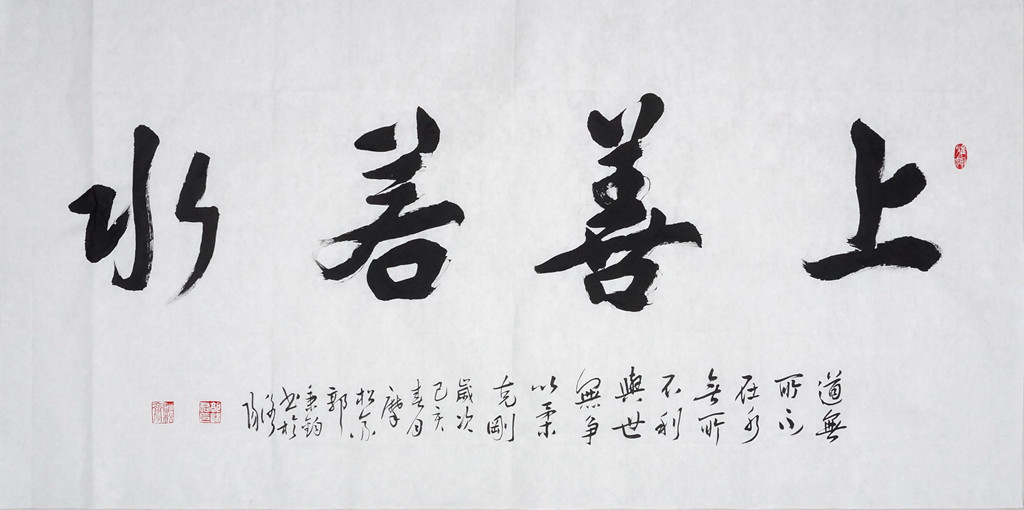 上善若水
道無
所不
在水
無所
不利
與世
無爭
以柔
克剛
歲次
己亥
春月
松系
郭
秉鈞
書於